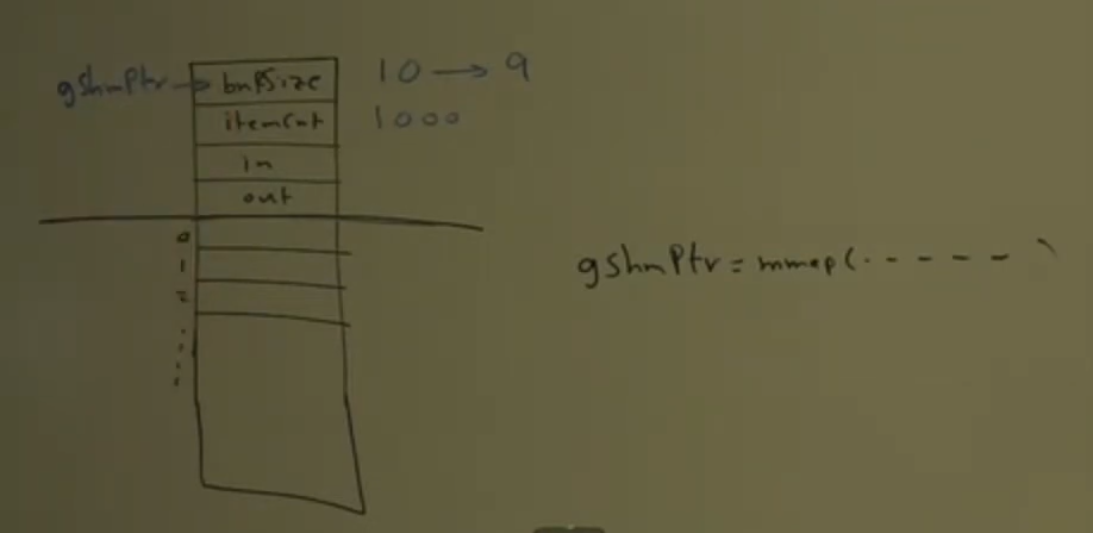 gShmPtr → bufSize 10 → 9
itemCnt 1000
in
out
0
1
2
gShmPtr = mmap(- - - - - )